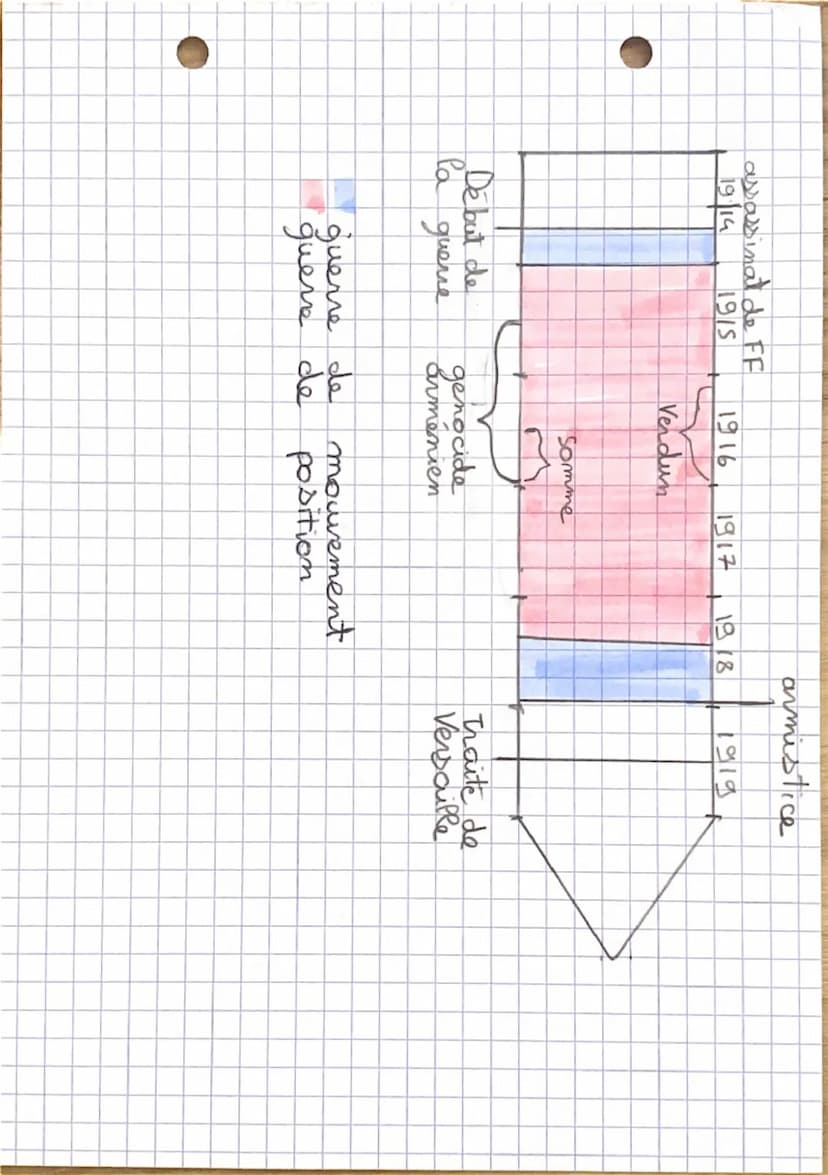 armistice
assassinat de FF
1914 1915 1916 1917 1918 1919
Verdun
Somme
Début de
la guerre
genocide
arménien
Traité de
Versaille
guerre de mouvement
guerre de position